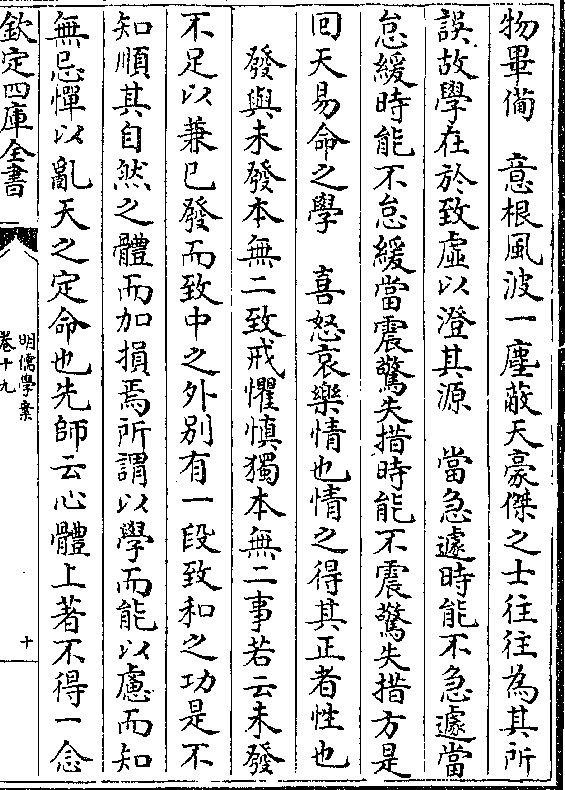 物畢備　意根風波一塵蔽天豪傑之士往往為其所
誤故學在於致虛以澄其源　當急遽時能不急遽當
怠緩時能不怠緩當震驚失措時能不震驚失措方是
回天易命之學　喜怒哀樂情也情之得其正者性也
發與未發本無二致戒懼慎獨本無二事若云未發
不足以兼已發而致中之外別有一段致和之功是不
知順其自然之體而加損焉所謂以學而能以慮而知
無忌憚以亂天之定命也先師云心體上著不得一念
欽定四庫全書
明儒學案
卷十九
十